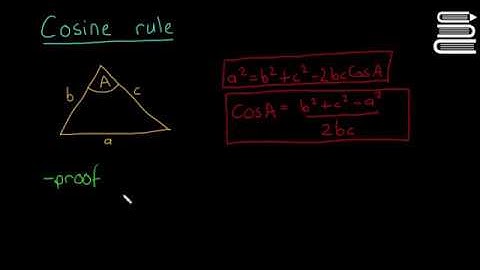 Cosine rule
A
b
c
a
a²=b²+c²-2bcCosA
CosA = b²+c²-a²
2bc
-proof